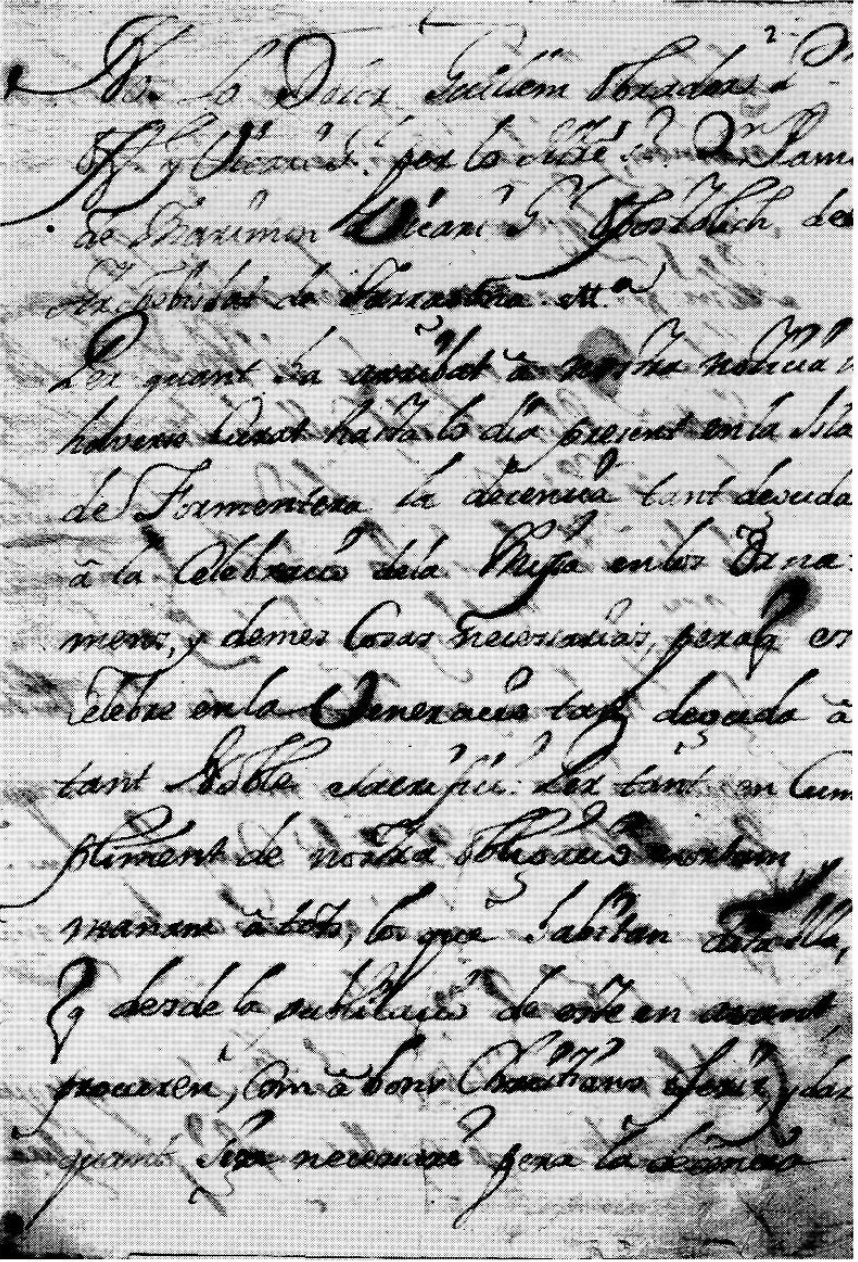 Nos Lo Doctr. Guillem Obradors
Off. y Vicari Gl. per lo Illtre. Sr. Dn.
de Marimon Vicari Gl. Apostolich del
Archebisbat de Tarragona &a.
Per quant ha arribat â nostra noticia
haberse estat hasta lo dia present en la Isla
de Formentera la decencia tant deguda
â la Celebracio dela Missa en los Orna=
mens, y demes Cosas necessarias, peraq es
celebre en la Veneracio tan deguda â
tant Noble sacrifici: Per tant en Cum
pliment de nostra obligacio exortam
manam â tots, los que habitan
q desde la publicacio de este en avant
procuren, Com â bons Christians y dar
quant sera necessari pera la decencia